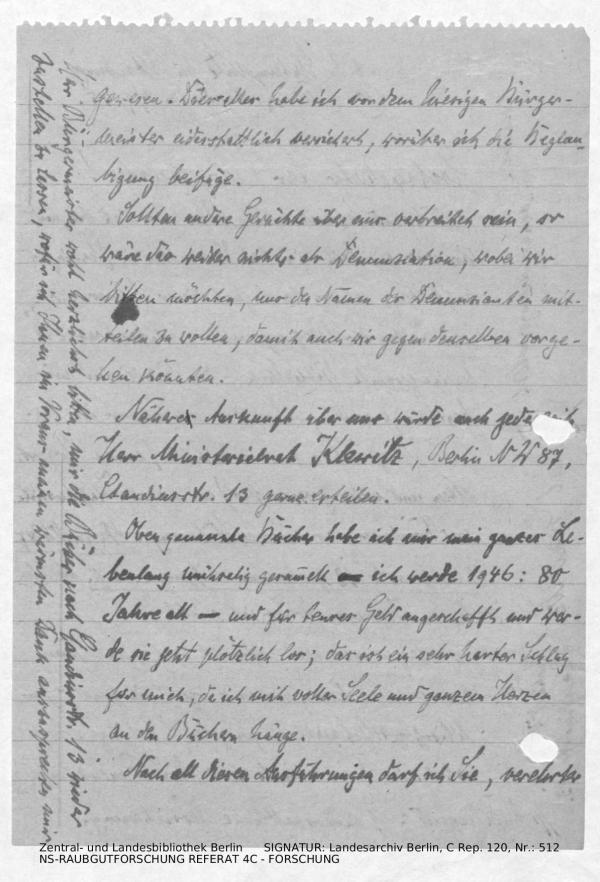 gewesen. Dasselbe habe ich vor dem hiesigen Bürger-
meister eidesstattlich versichert, worüber ich die Beglau-
bigung beifüge.
Sollten andere Gerüchte über uns verbreitet sein, so
wäre das weiter nichts als Denunziation, wobei wir
bitten möchten, uns den Namen des Denunzianten mit-
teilen zu wollen, damit auch wir gegen denselben vorge-
hen könnten.
Nähere Auskunft über uns würde auch jederzeit
Herr Ministerialrat Klewitz, Berlin NW 87,
Claudiusstr. 13 gerne erteilen.
Oben genannte Bücher habe ich mir mein ganzes Le-
benlang mühselig gesammelt — ich werde 1946: 80
Jahre alt — und für teures Geld angeschafft und wer-
de sie jetzt plötzlich los; das ist ein sehr harter Schlag
für mich, da ich mit voller Seele und ganzem Herzen
an den Büchern hänge.
Nach all diesen Ausführungen darf ich Sie, verehrter
Herr Bürgermeister recht herzlichst bitten, mir die Bücher nach Claudiusstr. 13 wieder
zustellen zu lassen, wofür ich Ihnen im Voraus meinen wärmsten Dank auszusprechen mir
Zentral- und Landesbibliothek Berlin SIGNATUR: Landesarchiv Berlin, C Rep. 120, Nr.: 512
NS-RAUBGUTFORSCHUNG REFERAT 4C - FORSCHUNG